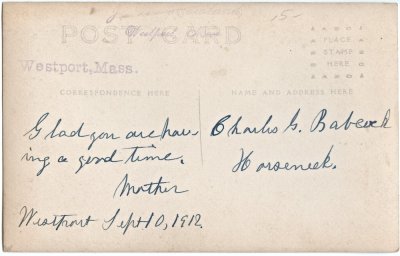 15-
POST CARD
Westport, Mass.
PLACE
STAMP
HERE
CORRESPONDENCE HERE
NAME AND ADDRESS HERE
Glad you are hav-
ing a good time.
Mother
Westport Sept 10, 1912.
Charles G. Babcock
Horseneck.